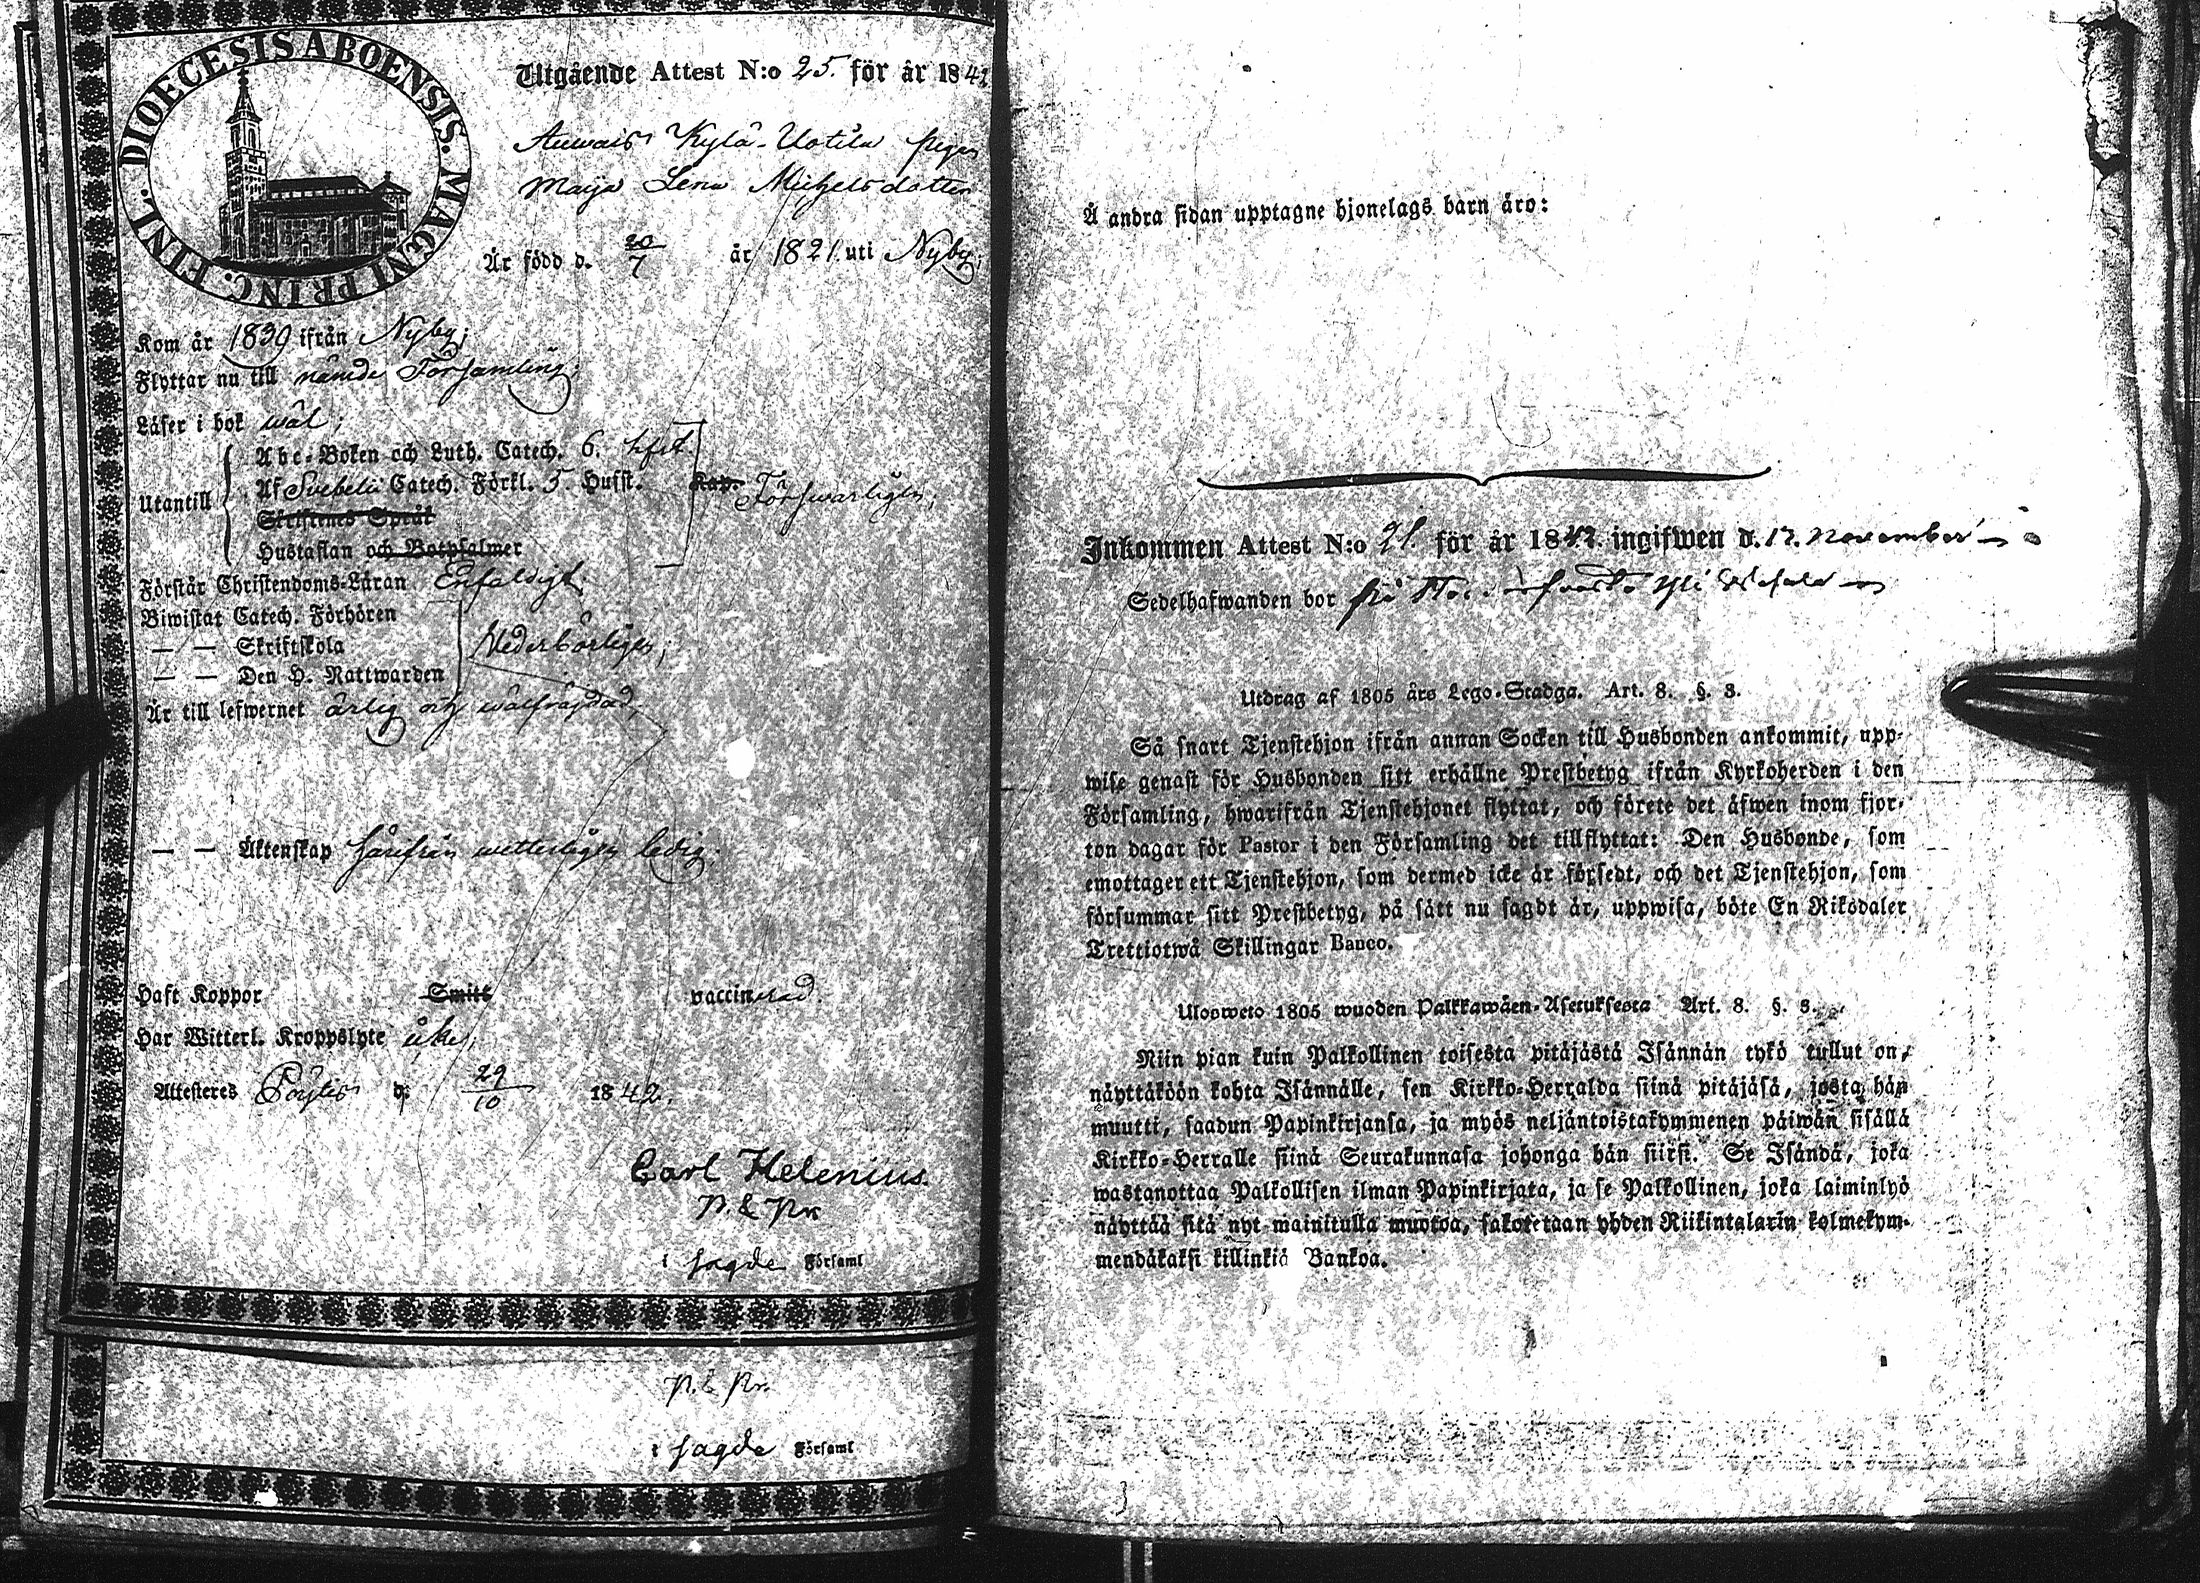 DIOECESIS ABOENSIS. MAGNI PRINC. FINL.
Utgående Attest N:o 25. för år 1842
Auvais Kylä-Uotila pigan
Maija Lena Michelsdotter
Är född d. 20/7 år 1821 uti Nyby;
Kom år 1839 ifrån Nyby;
Flyttar nu till nämde Församling;
Läser i bok wäl;
Utantill
Abc-Boken och Luth. Catech. 6. hfst
Af Svebelii Catech. Förkl. 5. Hufst. Kap. Förswarligen;
Skriftens Språk
Hustaflan och Botpsalmer
Förstår Christendoms-Läran Enfaldigt
Biwistat Catech. Förhören
— — Skriftskola Vederbörligen;
— — Den H. Nattwarden
Är till lefwernet ärlig och wälfrägdad,
— — Äktenskap härifrån wetterligen ledig;
Haft Koppor Smitt vaccinerad.
Har Witterl. Kroppslyte icke;
Attesteres Pöytis d. 29/10 1842.
Carl Helenius.
P. & Pr
i sagde Församl
P. & Pr.
i sagde Församl
Å andra sidan upptagne hjonelags barn äro:
Inkommen Attest N:o 21. för år 1842. ingifwen d. 12. November
Sedelhafwanden bor på
Utdrag af 1805 års Lego-Stadga. Art. 8. §. 3.
Så snart Tjenstehjon ifrån annan Socken till Husbonden ankommit, upp-
wise genast för Husbonden sitt erhållne Prestbetyg ifrån Kyrkoherden i den
Församling, hwarifrån Tjenstehjonet flyttat, och förete det äfwen inom fjor-
ton dagar för Pastor i den Församling det tillflyttat: Den Husbonde, som
emottager ett Tjenstehjon, som dermed icke är försedt, och det Tjenstehjon, som
försummar sitt Prestbetyg, på sätt nu sagdt är, uppwisa, böte En Riksdaler
Trettiotwå Skillingar Banco.
Ulosweto 1805 wuoden Palkkawäen-Asetuksesta Art. 8. §. 3.
Niin pian kuin Palkollinen toisesta pitäjästä Isännän tykö tullut on,
näyttäköön kohta Isännälle, sen Kirkko-Herralda siinä pitäjäsä, josta hän
muutti, saadun Papinkirjansa, ja myös neljäntoistakymmenen päiwän sisällä
Kirkko-Herralle siinä Seurakunnasa johonga hän siirsi. Se Isändä, joka
wastanottaa Palkollisen ilman Papinkirjata, ja se Palkollinen, joka laiminlyö
näyttää sitä nyt mainitulla muotoa, sakotetaan yhden Riikintalarin kolmekym-
mendäkaksi killinkiä Bankoa.